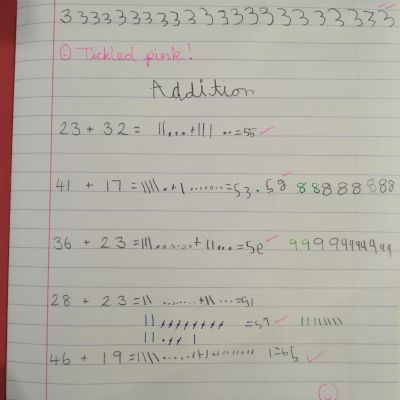 3 3 3 3 3 3 3 3 3 3 3 3 3 3 3 3 3 3 3 3 3 3
Tickled pink!
Addition
23 + 32 = ||...+||| ..=55
41 + 17 = ||||.+| .......=53.58 8 8 8 8 8 8 8 8
36 + 23 = |||......+||...=5e 9 9 9 9 9 9 9 9 9 9 9
28 + 23 = || ........+||...=51
|| //////// =51 ||||||||
|| ... |
46 + 19 = ||||......(+|......... |=65